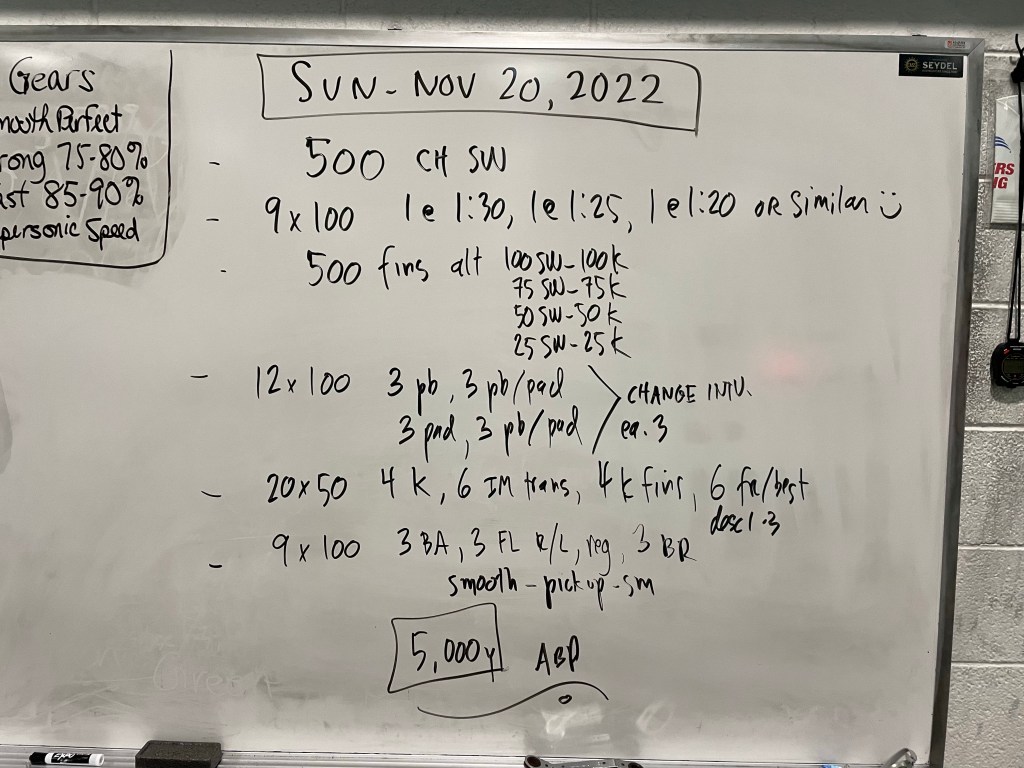 Gears
mooth Perfect
rong 75-80%
ast 85-90%
personic Speed
SUN - NOV 20, 2022
- 500 CH SW
- 9 x 100 1 @ 1:30, 1 @ 1:25, 1 @ 1:20 OR Similar
- 500 fins alt 100 SW - 100 K
75 SW - 75 K
50 SW - 50 K
25 SW - 25 K
- 12 x 100 3 pb, 3 pb/pad
3 pad, 3 pb/pad
CHANGE INTV.
ea. 3
- 20 x 50 4 K, 6 IM trans, 4 K fins, 6 fr/best
desc 1-3
- 9 x 100 3 BA, 3 FL R/L, reg, 3 BR
smooth - pick up - sm
5,000y ABP
SEYDEL
RS
IG
EXPO